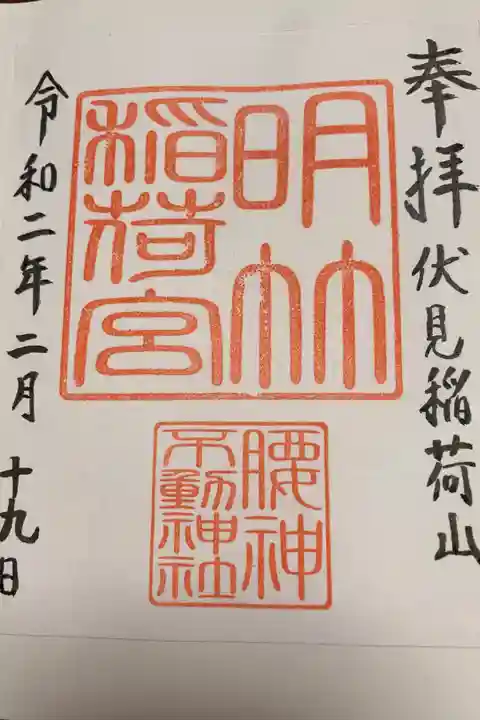 奉拝 伏見稲荷山
明竹
稲荷宮
腰神
不動神社
令和二年二月十九日